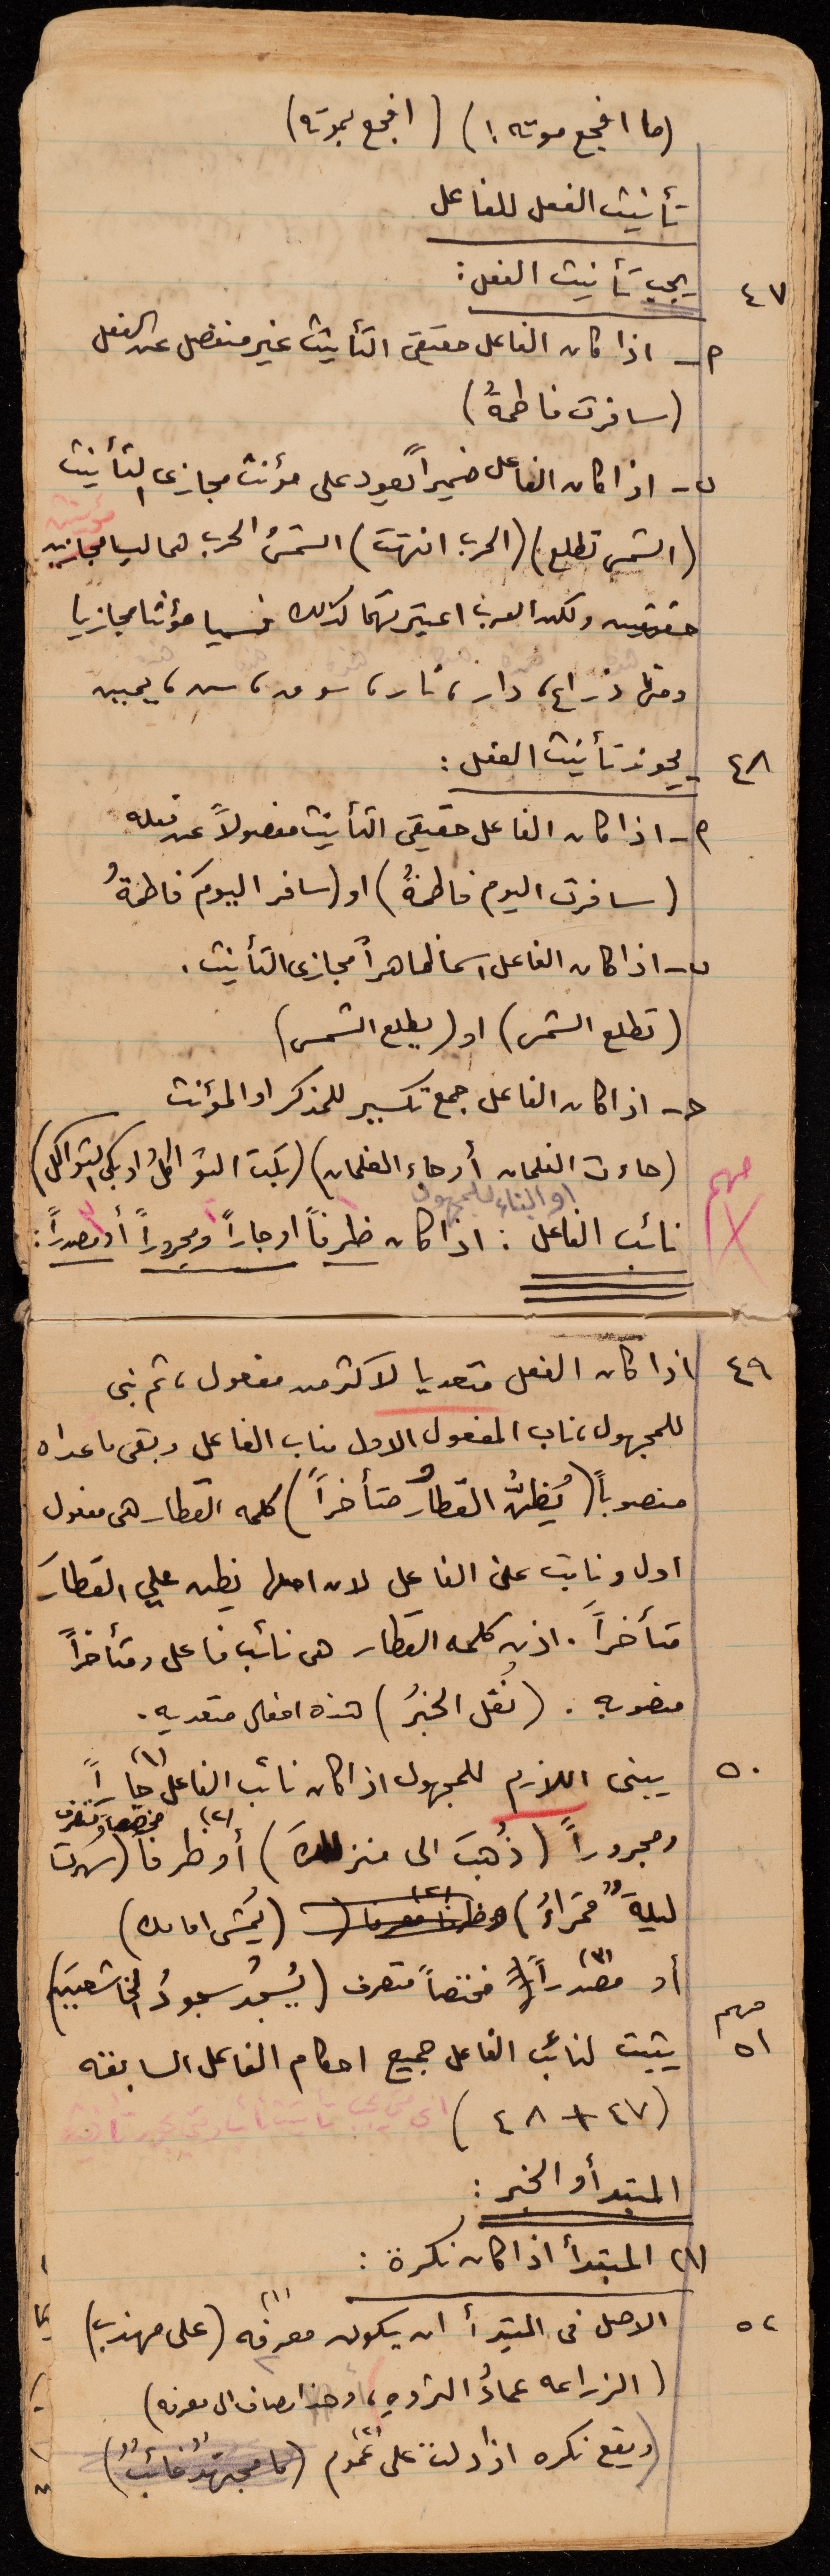 (ما افجع موته!) (افجع بموته)
تأنيث الفعل للفاعل
٤٧ يجب تأنيث الفعل:
أ - اذا كان الفاعل حقيقي التأنيث غير منفصل عن الفعل
(سافرت فاطمةُ)
ب - اذا كان الفاعل ضميراً يعود على مؤنث مجازي التأنيث
(الشمس تطلع) (الحرب انتهت) الشمسُ الحرب هما ليسا مجازين
مؤنثين
حقيقين ولكن العرب اعتبرتهما كذلك فسميا مؤنثا مجازيا
ومثلها ذراع، دار، نار، سوق، سن، يمين
٤٨ يجوز تأنيث الفعل:
أ - اذا كان الفاعل حقيقي التأنيث مفصولاً عن فعله
(سافرت اليوم فاطمةُ) او (سافر اليومَ فاطمةُ
ب - اذا كان الفاعل اسما ظاهراً مجازي التأنيث.
(تطلع الشمس) او (يطلع الشمس)
ج - اذا كان الفاعل جمع تكسير للمذكر او المؤنث
(جاءت الغلمان أو جاء الغلمان) (بكت الثواكلُ او بكى الثواكل)
او البناء للمجهول
مهم نائب الفاعل: اذا كان ظرفاً او جاراً ومجروراً أو مصدراً:
٤٩ اذا كان الفعل متعديا لاكثر من مفعول، ثم بني
للمجهول، ناب المفعول الاول مناب الفاعل وبقي ما عداه
منصوباً (يُظنُّ القطارُ متأخراً) كلمه القطار هي مفعول
اول ونابت عن الفاعل لان اصلها يظن علي القطارَ
متأخراً. اذن كلمه القطار هي نائب فاعل ومتأخراً
منصوبه. (نُقل الخبرُ) هذه افعال متعديه.
٥٠ يبنى اللازم للمجهول اذا كان نائب الفاعل (١) جاراً
ومجروراً (ذُهبَ الى منزلكَ) (٢) أو ظرفاً مختصا متصرف (سُهرت
ليلةٌ قمراءُ) (يُمشى امامك)
أو (٣) مصدراً مختصاً متصرف (يُسجدُ سجودُ الخاشعين)
مهم
٥١ يثبت لنائب الفاعل جميع احكام الفاعل السابقه
(٤٧ + ٤٨)
المبتدأ والخبر:
(١) المبتدأ اذا كان نكرة:
٥٢ الاصل في المبتدأ ان يكون (١) معرفه (علي مهذب)
(الزراعه عمادُ الثروهِ، وهذا مضاف الى معرفه)
(ويقع نكره اذا دلت على (٢) عموم (ما مجتهدٌ خائبٌ)